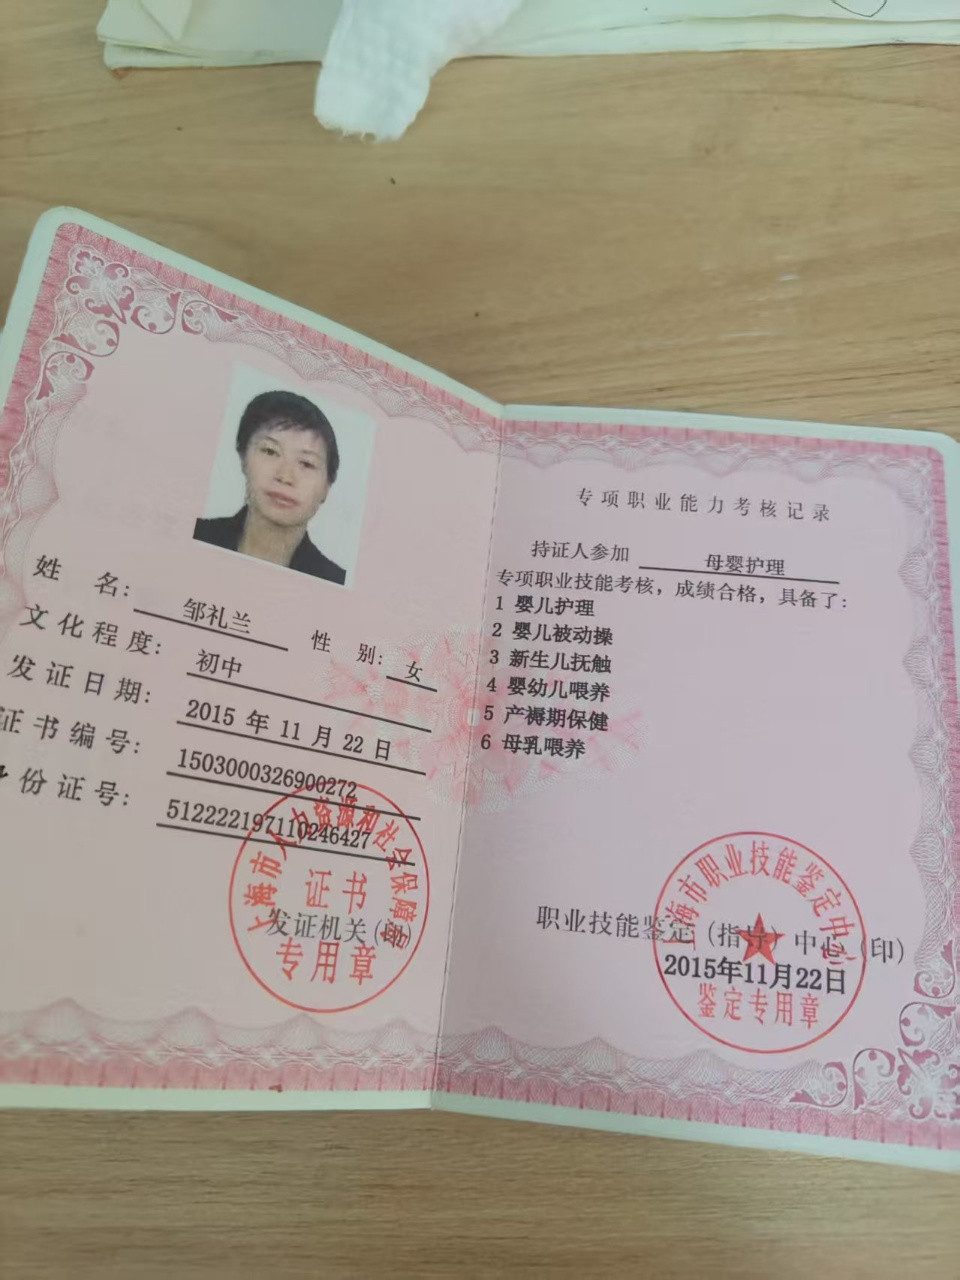 姓 名: 邹礼兰 性 别: 女
文化程度: 初中
发证日期: 2015 年 11 月 22 日
证书编号: 1503000326900272
份证号: 512222197110246427
上海市人力资源和社会保障局
证书
发证机关(印)
专用章
专项职业能力考核记录
持证人参加 母婴护理
专项职业技能考核，成绩合格，具备了:
1 婴儿护理
2 婴儿被动操
3 新生儿抚触
4 婴幼儿喂养
5 产褥期保健
6 母乳喂养
上海市职业技能鉴定中心
职业技能鉴定（指导）中心（印）
2015年11月22日
鉴定专用章